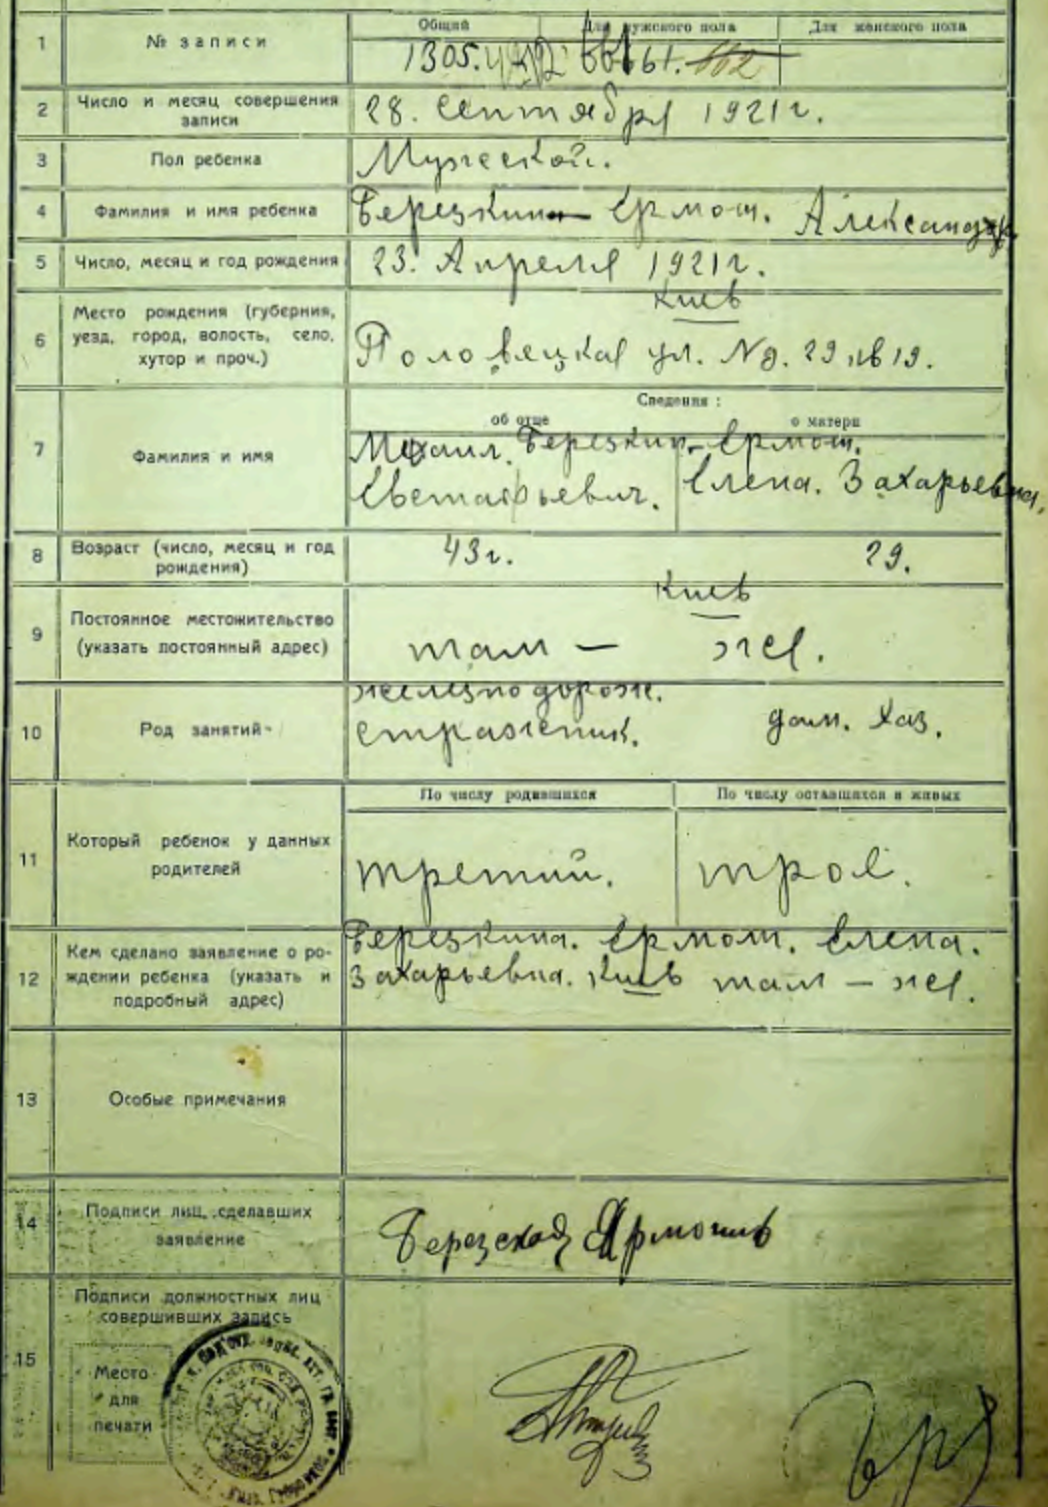 1
№ записи
Общий
Для мужского пола
Для женского пола
1305.
2
Число и месяц совершения
записи
28. Сентября 1921г.
3
Пол ребенка
Мужеской.
4
Фамилия и имя ребенка
Березкин Ермош. Александр
5
Число, месяц и год рождения
23. Апреля 1921г.
6
Место рождения (губерния,
уезд, город, волость, село,
хутор и проч.)
Киев
Половецкая ул. №. 29 кв 19.
7
Фамилия и имя
Сведения:
об отце
о матери
Березкин-Ермош.
Михаил.
Евстафьевич.
Елена. Захарьевна.
8
Возраст (число, месяц и год
рождения)
43г.
29.
9
Постоянное местожительство
(указать постоянный адрес)
Киев
там — же.
10
Род занятий
железнодорож.
стражник.
дом. хаз.
11
Который ребенок у данных
родителей
По числу родившихся
По числу оставшихся в живых
третий.
трое.
12
Кем сделано заявление о ро-
ждении ребенка (указать и
подробный адрес)
Березкина. Ермош. Елена.
Захарьевна. Киев там — же.
13
Особые примечания
14
Подписи лиц, сделавших
заявление
15
Подписи должностных лиц
совершивших запись
Место
для
печати